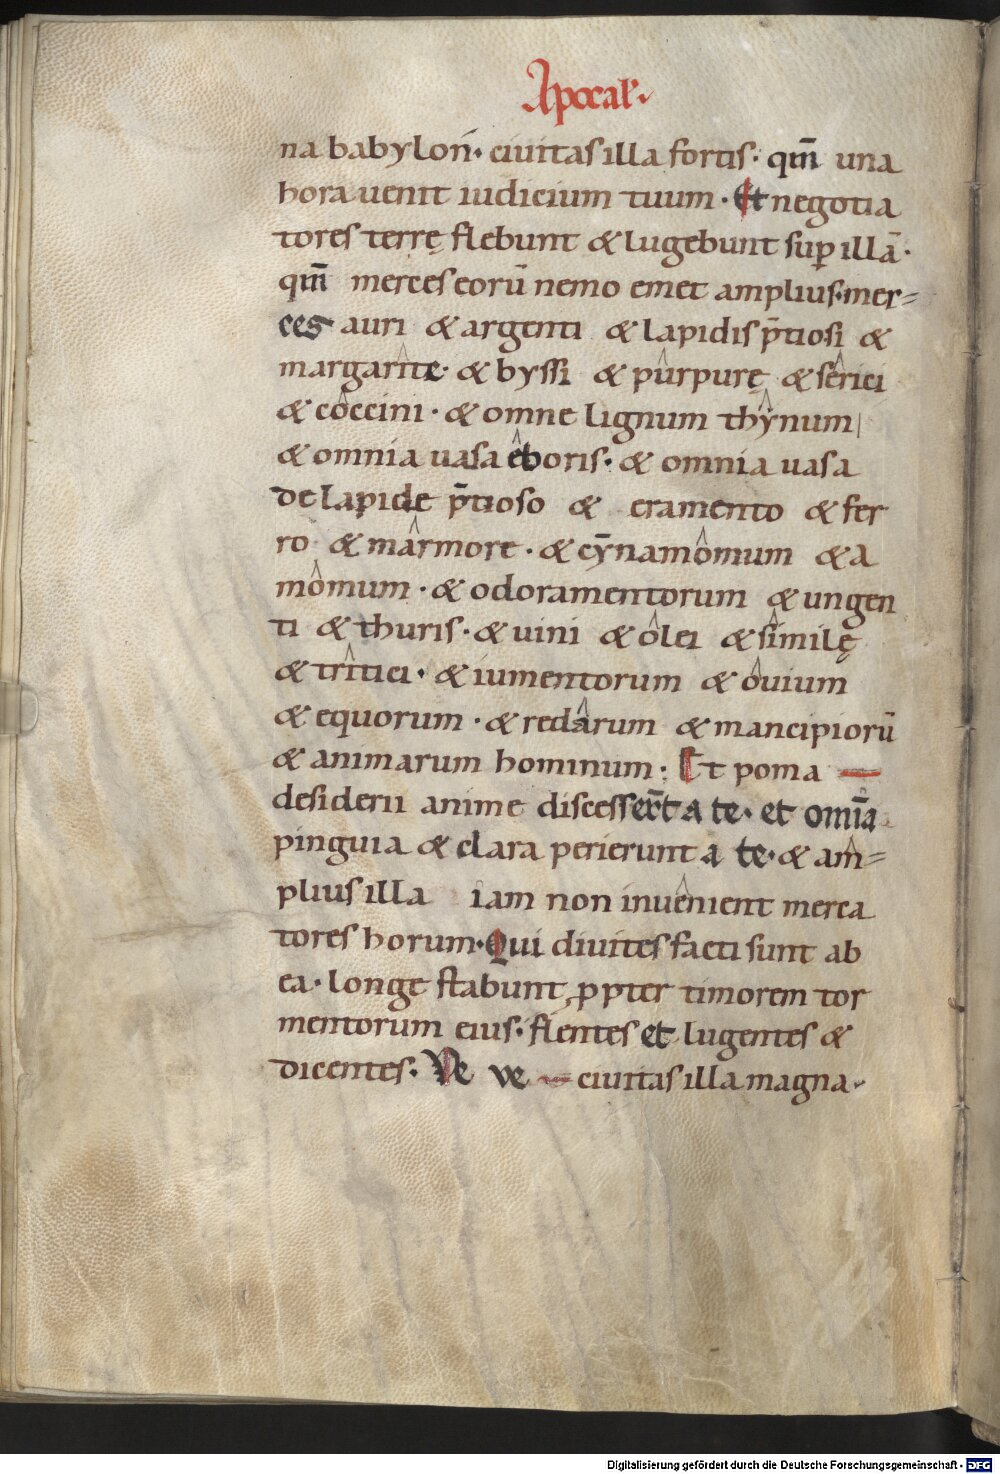 Apocal̓.
na babylon̄. ciuitas illa fortis. qm̄ una
hora uenit iudicium tuum. Et negotia
tores terrę flebunt & lugebunt sup̱ illā.
qm̄ merces eorū nemo emet amplius. mer=
ces auri & argenti & lapidis p̄tiosi &
margarite. & byssi & purpurę & serici
& coccini. & omne lignum thyinum
& omnia uasa eboris. & omnia uasa
de lapide p̄tioso & eramento & fer
ro & marmore. & cynamomum & a
momum. & odoramentorum & ungen
ti & thuris. & uini & olei & similę
& tritici. & iumentorum & ouium
& equorum. & redarum & mancipiorū
& animarum hominum. Et poma
desiderii anime discesser̄t a te. et om̄ia
pinguia & clara perierunt a te. & am=
plius illa iam non inuenient merca
tores horum. Qui diuites facti sunt ab
ea. longe stabunt, ppter timorem tor
mentorum eius. flentes et lugentes &
dicentes. Ve ve ciuitas illa magna.
Digitalisierung gefördert durch die Deutsche Forschungsgemeinschaft - DFG